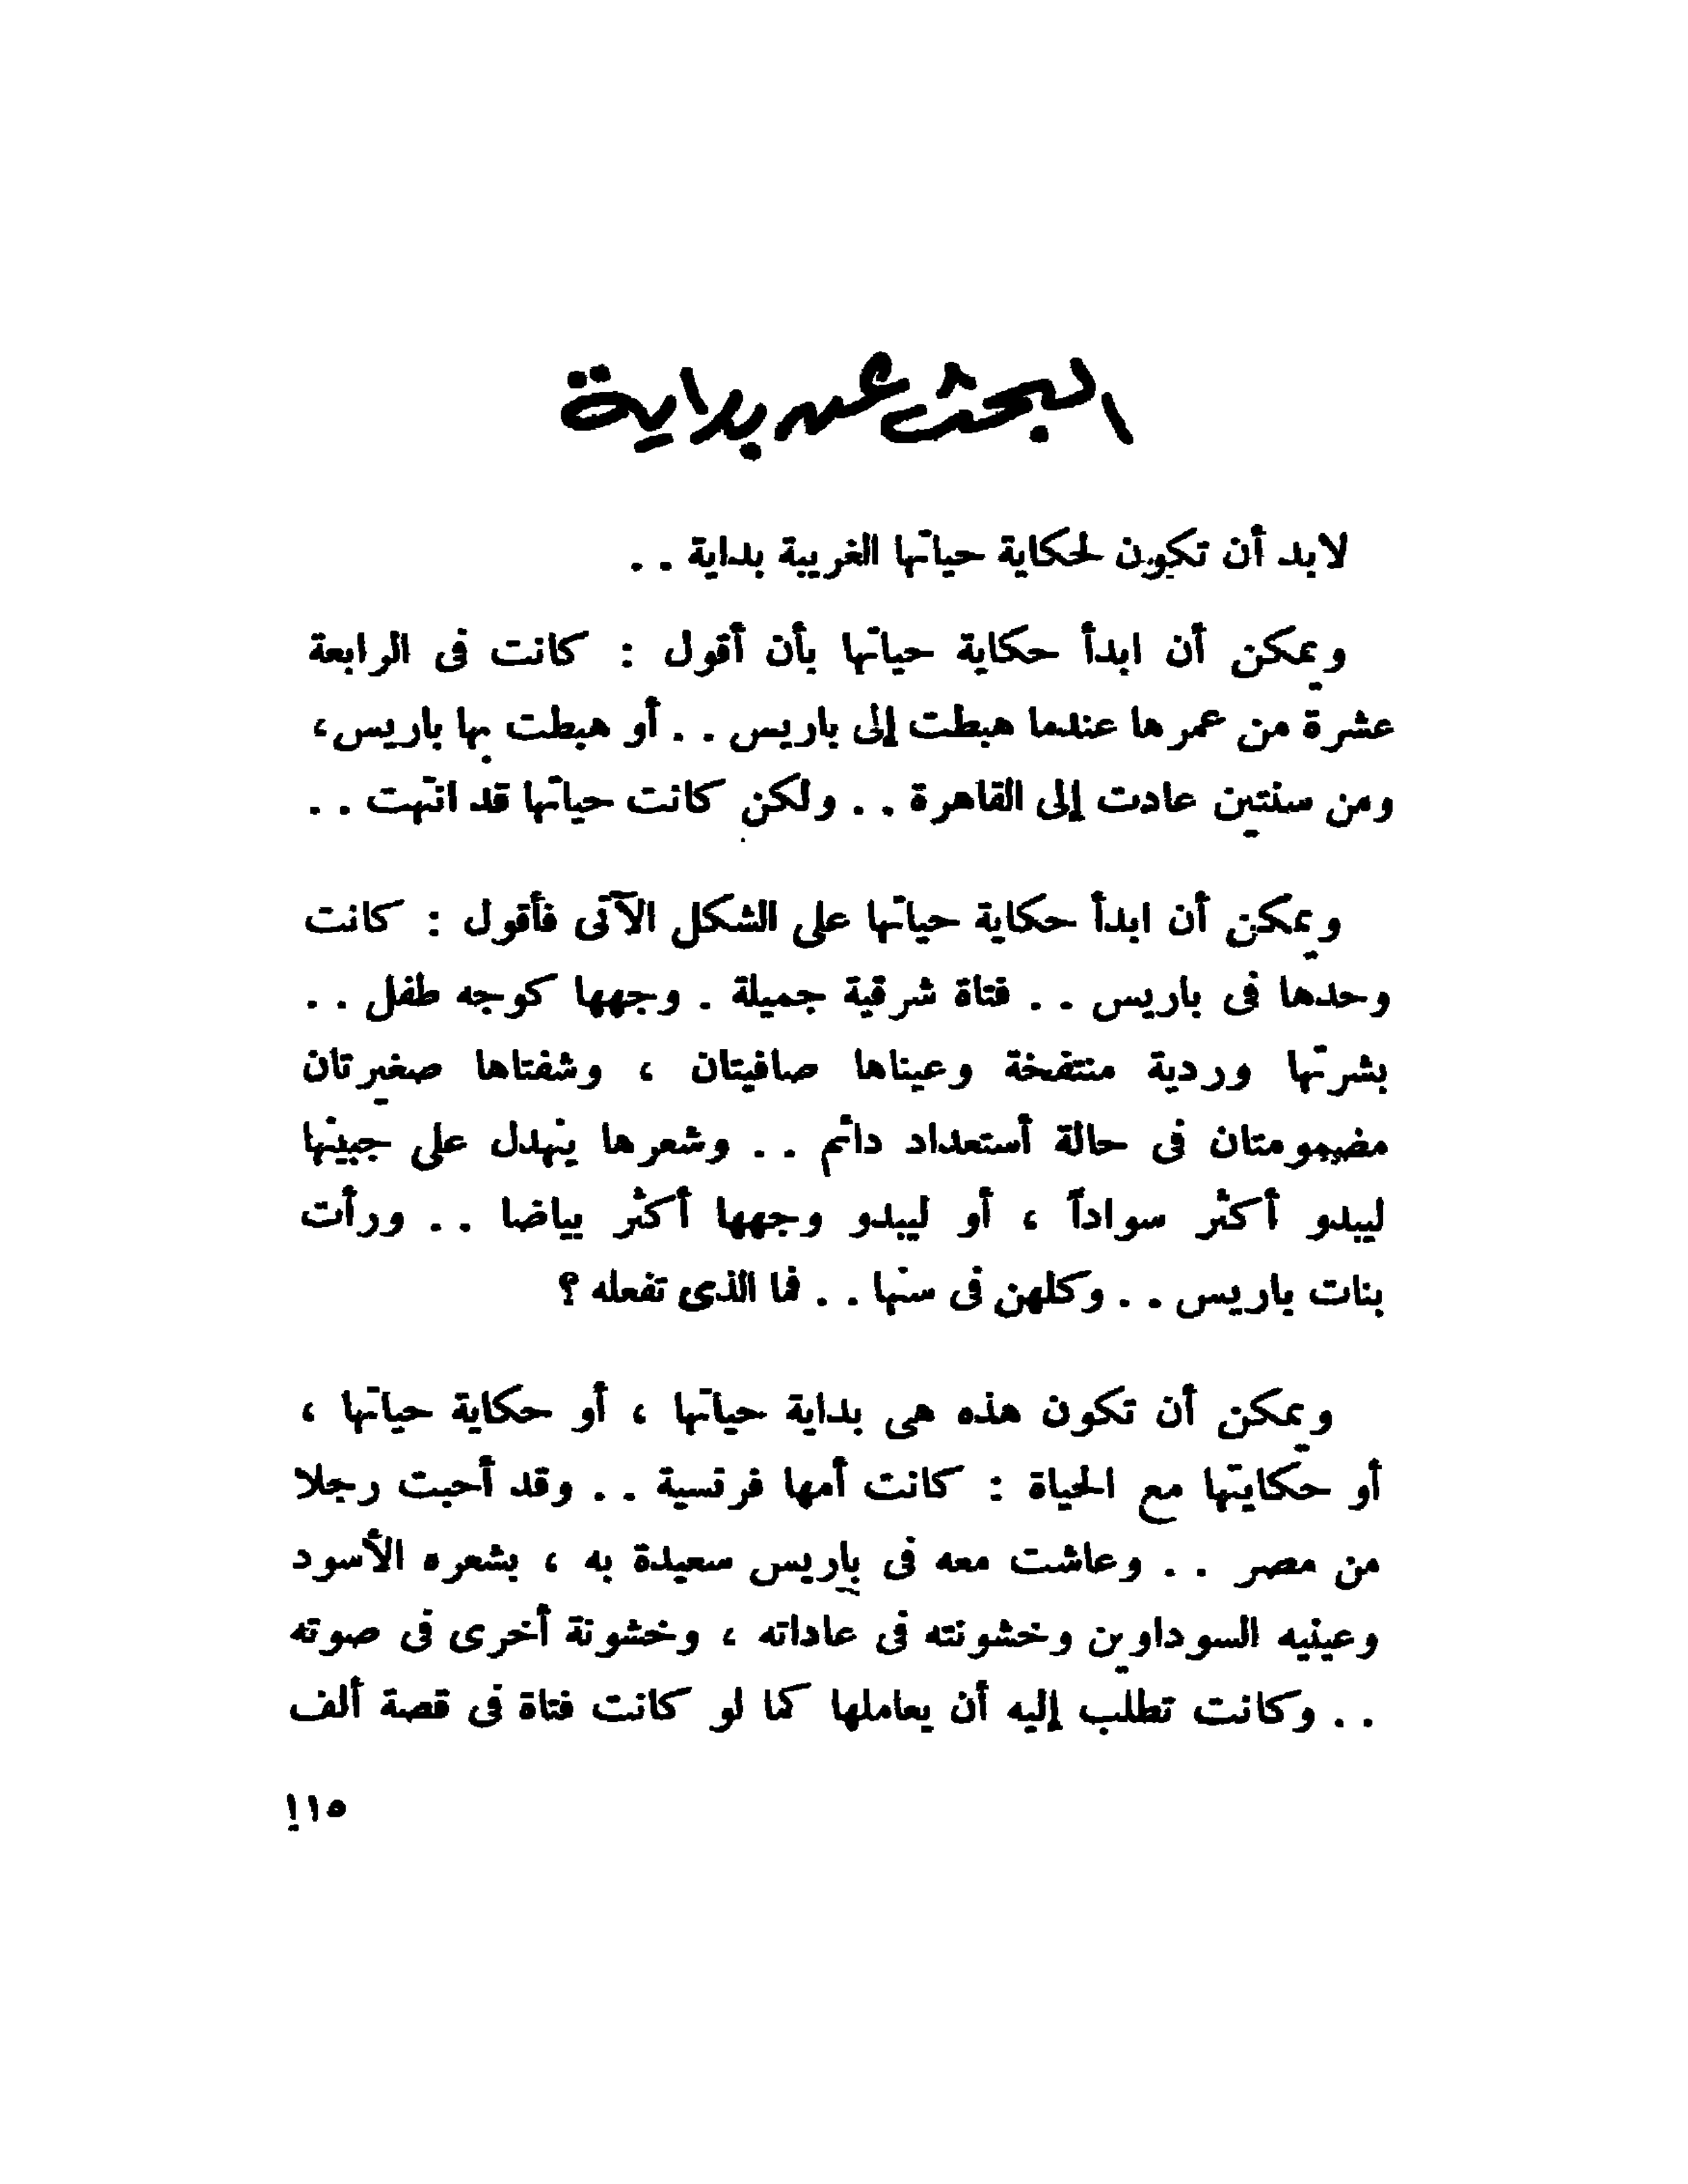 البحث عن بداية
لابد أن تكون لحكاية حياتها الغريبة بداية . .
ويمكن أن ابدأ حكاية حياتها بأن أقول : كانت فى الرابعة
عشرة من عمرها عندما هبطت إلى باريس . . أو هبطت بها باريس ،
ومن سنتين عادت إلى القاهرة . . ولكن كانت حياتها قد انتهت . .
ويمكن أن ابدأ حكاية حياتها على الشكل الآتى فأقول : كانت
وحدها فى باريس . . فتاة شرقية جميلة . وجهها كوجه طفل . .
بشرتها وردية منتفخة وعيناها صافيتان ، وشفتاها صغيرتان
مضمومتان فى حالة أستعداد دائم . . وشعرها ينهدل على جبينها
ليبدو أكثر سواداً ، أو ليبدو وجهها أكثر بياضا . . ورأت
بنات باريس . . وكلهن فى سنها . . فما الذى تفعله ؟
ويمكن أن تكون هذه هى بداية حياتها ، أو حكاية حياتها ،
أو حكايتها مع الحياة : كانت أمها فرنسية . . وقد أحبت رجلا
من مصر . . وعاشت معه فى باريس سعيدة به ، بشعره الأسود
وعينيه السوداوين وخشونته فى عاداته ، وخشونة أخرى فى صوته
. . وكانت تطلب إليه أن يعاملها كما لو كانت فتاة فى قصة ألف
١١٥